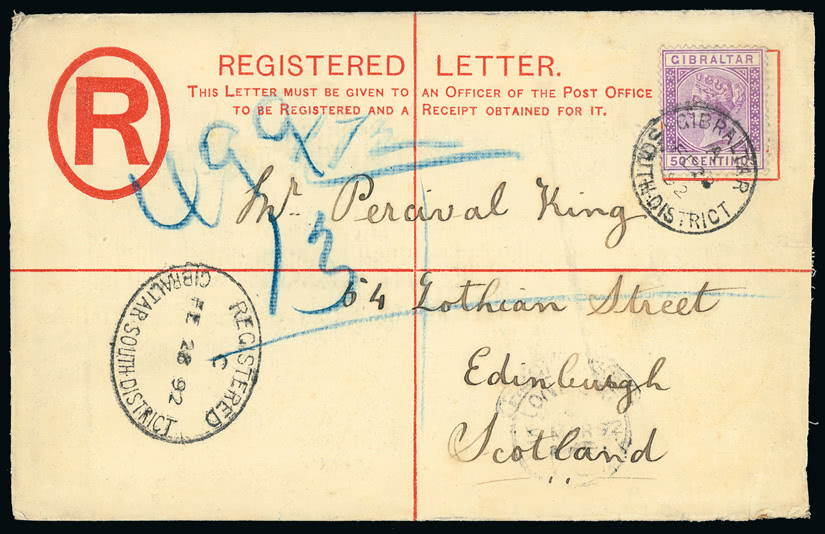 R
REGISTERED LETTER.
THIS LETTER MUST BE GIVEN TO AN OFFICER OF THE POST OFFICE
TO BE REGISTERED AND A RECEIPT OBTAINED FOR IT.
GIBRALTAR
50 CENTIMOS
GIBRALTAR
SOUTH DISTRICT
92
13
Mr. Percival King
64 Lothian Street
Edinburgh
Scotland
REGISTERED
C
FE 28 92
GIBRALTAR SOUTH DISTRICT
LONDON